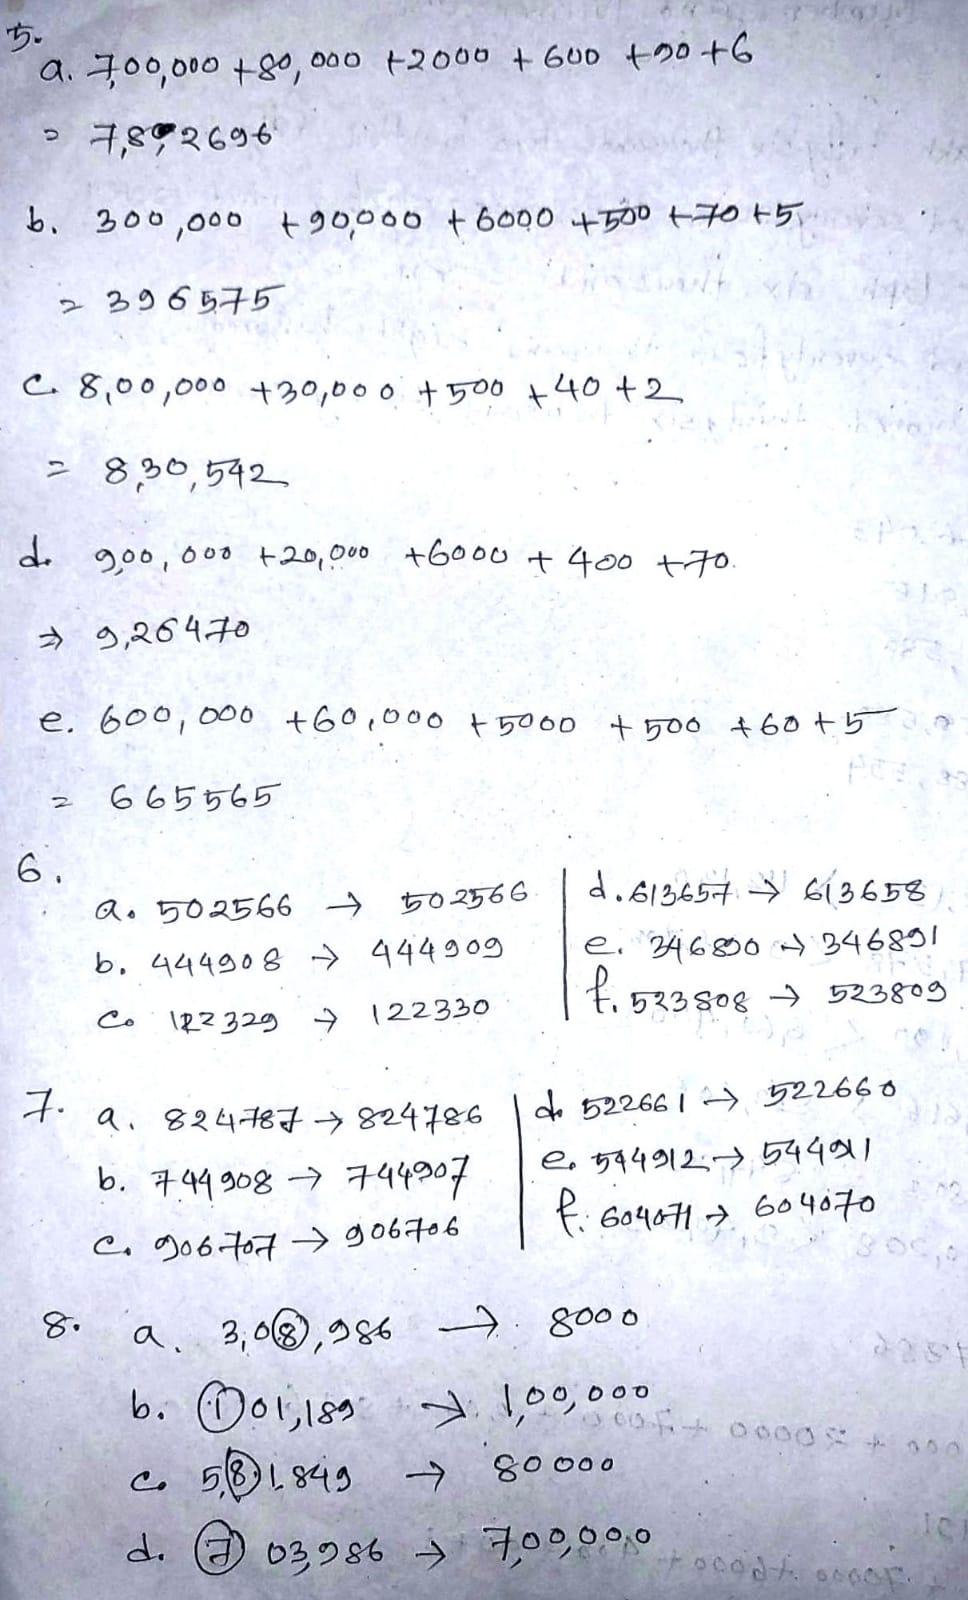 5.
a. 7,00,000 +80,000 +2000 + 600 +90 +6
= 7,8,2696
b. 300,000 +90,000 +6000 +500 +70 +5
= 396575
c. 8,00,000 +30,000 +500 +40 +2
= 8,30,542
d. 9,00,000 +20,000 +6000 + 400 +70.
⇒ 9,26470
e. 600,000 +60,000 +5000 +500 +60 +5
= 665565
6.
a. 502566 → 502566
b. 444908 → 444909
c. 122329 → 122330
d. 613657 → 613658
e. 346890 → 346891
f. 523808 → 523809
7.
a. 824787 → 824786
b. 744908 → 744907
c. 906707 → 906706
d. 522661 → 522660
e. 544912 → 544911
f. 604071 → 604070
8.
a. 3,08,986 → 8000
b. 101,189 → 1,00,000
c. 5,81,849 → 80000
d. 703,986 → 7,00,000